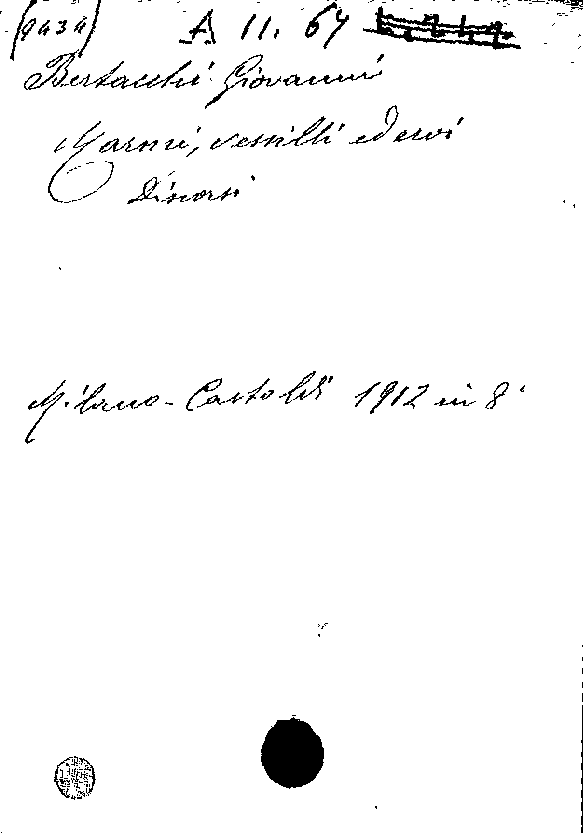 (9434) A 11. 64
Bertacchi Giovanni
Marmi, vessilli ed eroi
Discorsi
Milano - Castoldi 1912 in 8°